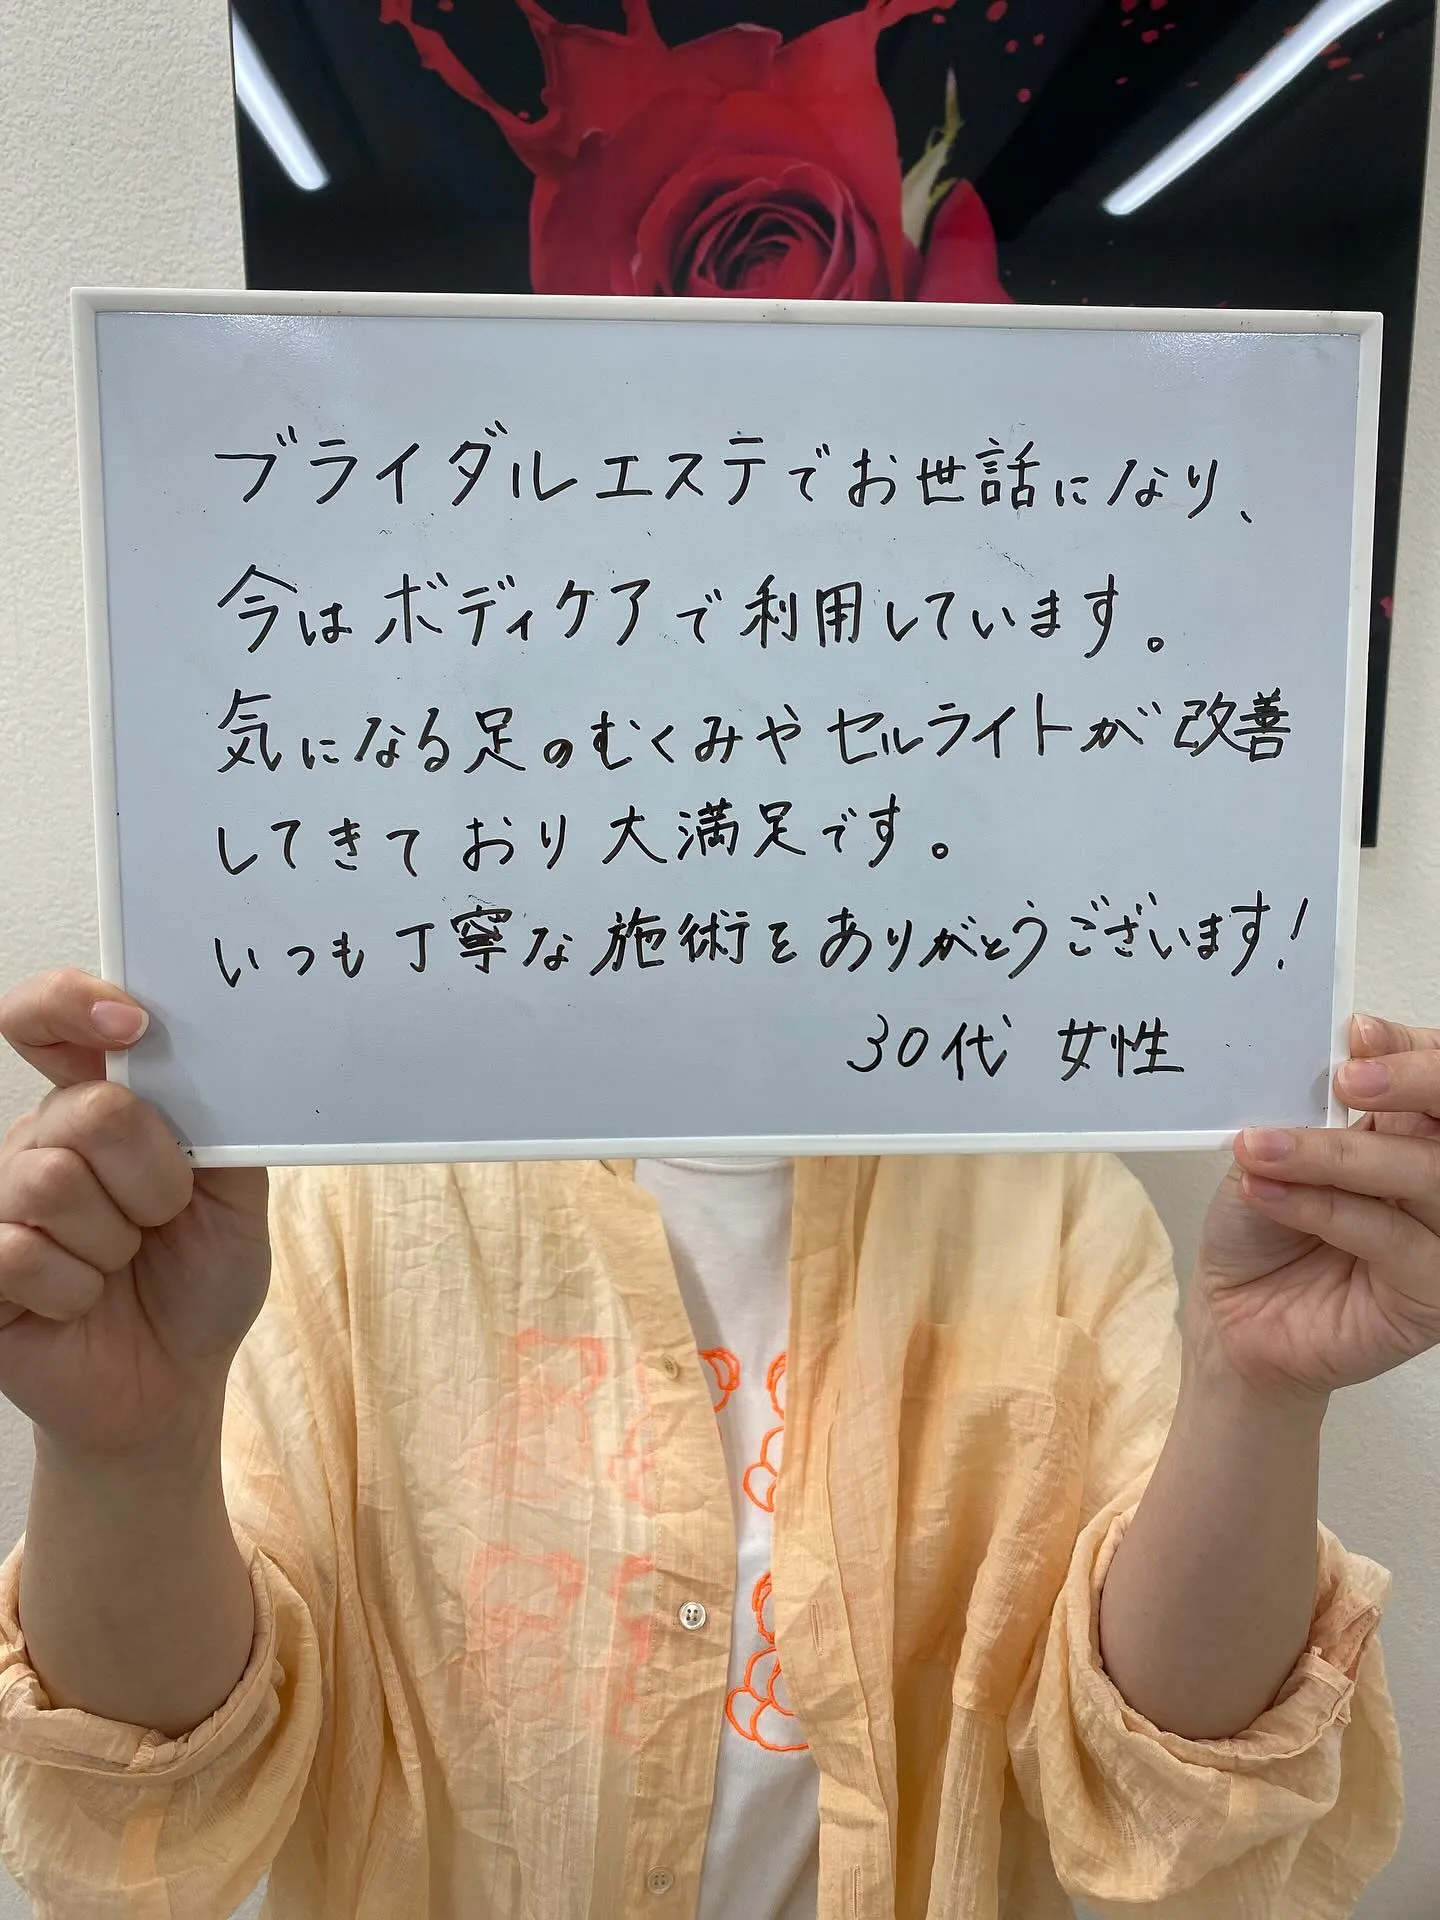 ブライダルエステでお世話になり、
今はボディケアで利用しています。
気になる足のむくみやセルライトが改善
してきており大満足です。
いつも丁寧な施術をありがとうございます!
30代 女性